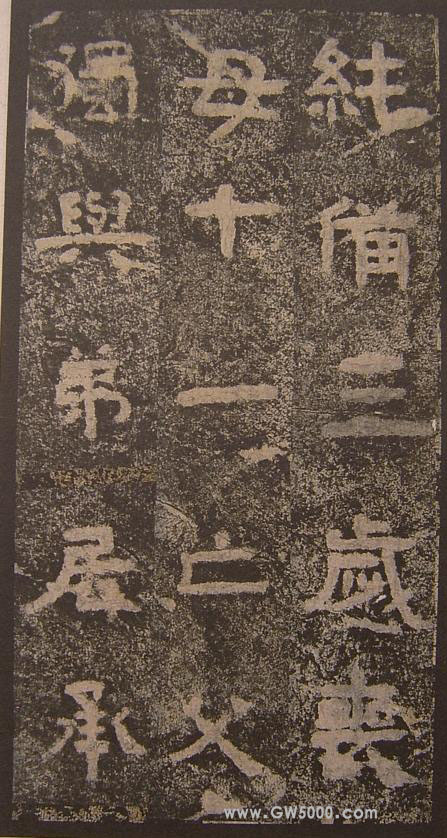 純備三歲喪
母十一亡父
獨與弟居承
www.GW5000.com